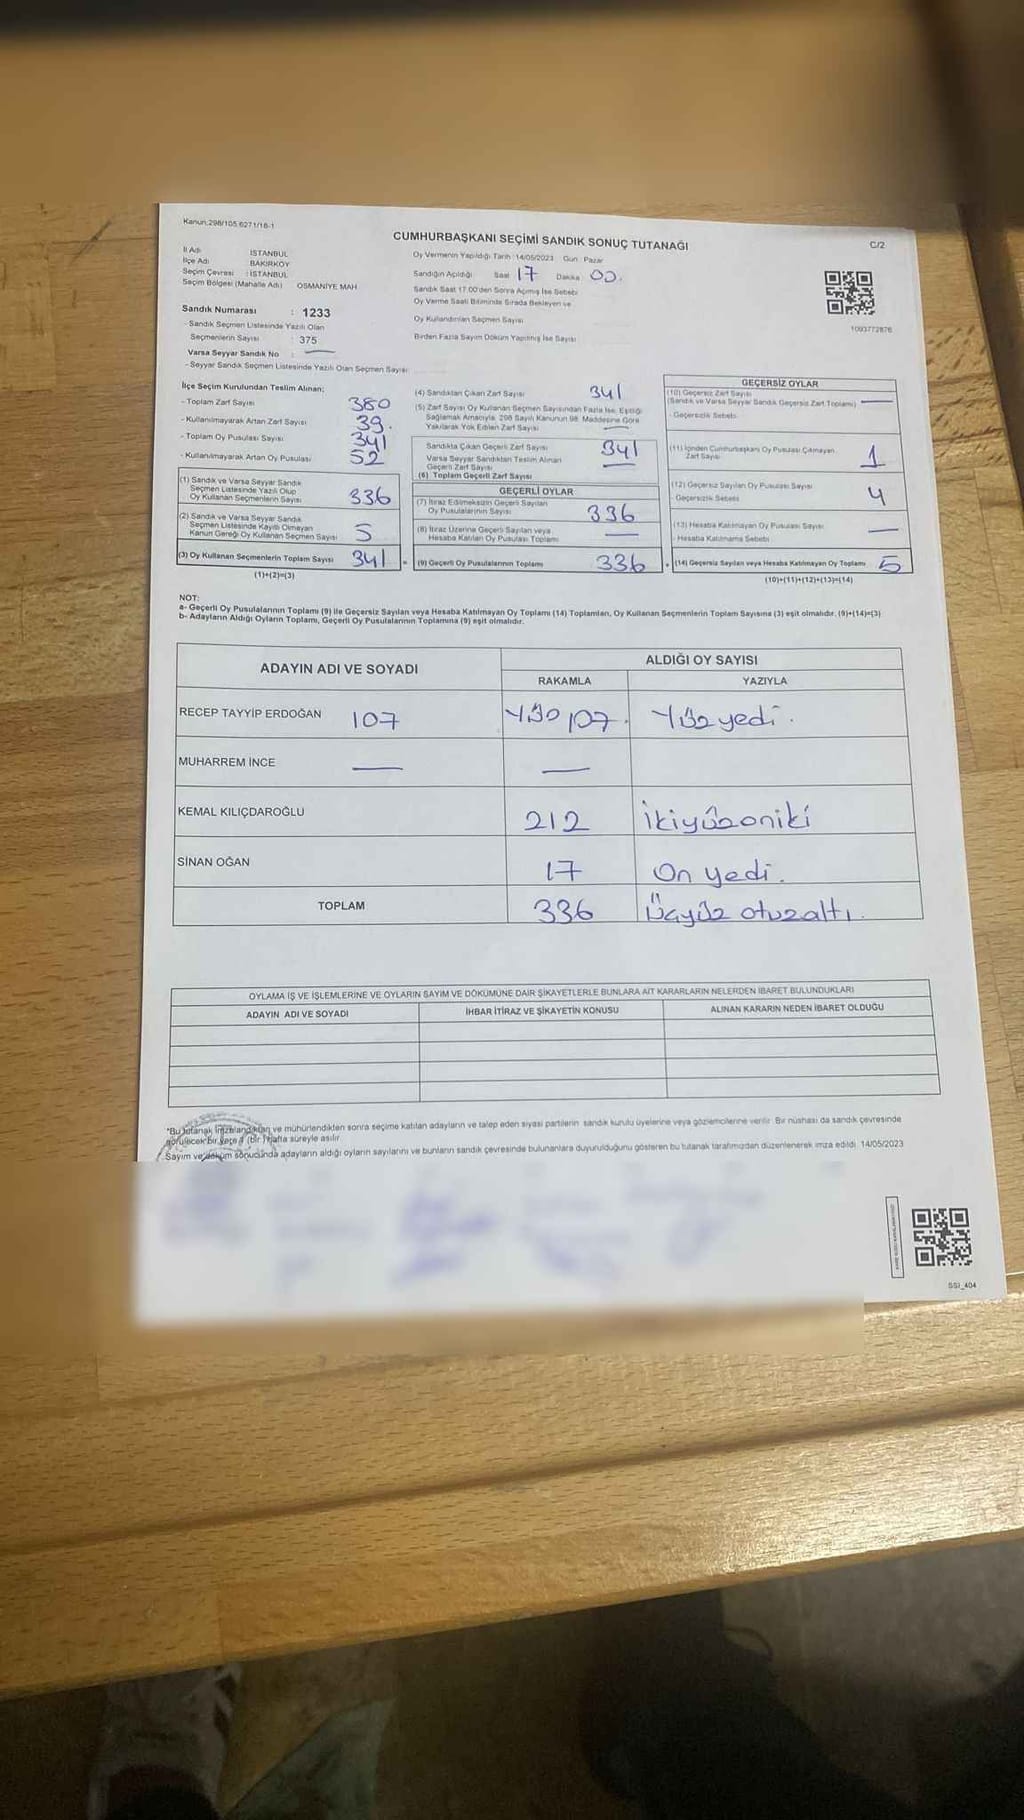 Kanun:298/105,6271/16-1
CUMHURBAŞKANI SEÇİMİ SANDIK SONUÇ TUTANAĞI
C/2
İl Adı İSTANBUL
İlçe Adı BAKIRKÖY
Seçim Çevresi : İSTANBUL
Seçim Bölgesi (Mahalle Adı) OSMANİYE MAH.
Oy Vermenin Yapıldığı Tarih :14/05/2023 Gün: Pazar
Sandığın Açıldığı Saat 17 Dakika 00.
Sandık Saat 17.00'den Sonra Açılmış İse Sebebi
Oy Verme Saati Bitiminde Sırada Bekleyen ve
Oy Kullandırılan Seçmen Sayısı
Birden Fazla Sayım Döküm Yapılmış İse Sayısı
1093772876
Sandık Numarası : 1233
- Sandık Seçmen Listesinde Yazılı Olan
Seçmenlerin Sayısı : 375
Varsa Seyyar Sandık No : —
- Seyyar Sandık Seçmen Listesinde Yazılı Olan Seçmen Sayısı:
İlçe Seçim Kurulundan Teslim Alınan;
- Toplam Zarf Sayısı 380
- Kullanılmayarak Artan Zarf Sayısı 39.
- Toplam Oy Pusulası Sayısı 341
- Kullanılmayarak Artan Oy Pusulası 52
(1) Sandık ve Varsa Seyyar Sandık
Seçmen Listesinde Yazılı Olup
Oy Kullanan Seçmenlerin Sayısı 336
(2) Sandık ve Varsa Seyyar Sandık
Seçmen Listesinde Kayıtlı Olmayan
Kanun Gereği Oy Kullanan Seçmen Sayısı 5
(3) Oy Kullanan Seçmenlerin Toplam Sayısı 341 =
(1)+(2)=(3)
(4) Sandıktan Çıkan Zarf Sayısı 341
(5) Zarf Sayısı Oy Kullanan Seçmen Sayısından Fazla İse, Eşitliği
Sağlamak Amacıyla, 298 Sayılı Kanunun 98. Maddesine Göre
Yakılarak Yok Edilen Zarf Sayısı —
Sandıkta Çıkan Geçerli Zarf Sayısı 341
Varsa Seyyar Sandıktan Teslim Alınan
Geçerli Zarf Sayısı —
(6) Toplam Geçerli Zarf Sayısı
GEÇERLİ OYLAR
(7) İtiraz Edilmeksizin Geçerli Sayılan
Oy Pusulalarının Sayısı 336
(8) İtiraz Üzerine Geçerli Sayılan veya
Hesaba Katılan Oy Pusulası Toplamı —
(9) Geçerli Oy Pusulalarının Toplamı 336 +
GEÇERSİZ OYLAR
(10) Geçersiz Zarf Sayısı
(Sandık ve Varsa Seyyar Sandık Geçersiz Zarf Toplamı) —
- Geçersizlik Sebebi
(11) İçinden Cumhurbaşkanı Oy Pusulası Çıkmayan
Zarf Sayısı 1
(12) Geçersiz Sayılan Oy Pusulası Sayısı 4
- Geçersizlik Sebebi
(13) Hesaba Katılmayan Oy Pusulası Sayısı —
- Hesaba Katılmama Sebebi
(14) Geçersiz Sayılan veya Hesaba Katılmayan Oy Toplamı 5
(10)+(11)+(12)+(13)=(14)
NOT:
a- Geçerli Oy Pusulalarının Toplamı (9) ile Geçersiz Sayılan veya Hesaba Katılmayan Oy Toplamı (14) Toplamları, Oy Kullanan Seçmenlerin Toplam Sayısına (3) eşit olmalıdır. (9)+(14)=(3)
b- Adayların Aldığı Oyların Toplamı, Geçerli Oy Pusulalarının Toplamına (9) eşit olmalıdır.
ADAYIN ADI VE SOYADI ALDIĞI OY SAYISI
RAKAMLA YAZIYLA
RECEP TAYYİP ERDOĞAN 107 Yüz 107. Yüzyedi.
MUHARREM İNCE — —
KEMAL KILIÇDAROĞLU 212 İkiyüzoniki
SİNAN OĞAN 17 On yedi.
TOPLAM 336 Üçyüz otuzaltı.
OYLAMA İŞ VE İŞLEMLERİNE VE OYLARIN SAYIM VE DÖKÜMÜNE DAİR ŞİKAYETLERLE BUNLARA AİT KARARLARIN NELERDEN İBARET BULUNDUKLARI
ADAYIN ADI VE SOYADI İHBAR İTİRAZ VE ŞİKAYETİN KONUSU ALINAN KARARIN NEDEN İBARET OLDUĞU
*Bu tutanak imzalandıktan ve mühürlendikten sonra seçime katılan adayların ve talep eden siyasi partilerin sandık kurulu üyelerine veya gözlemcilerine verilir. Bir nüshası da sandık çevresinde
görülecek bir yere 1 (bir) hafta süreyle asılır.
Sayım ve döküm sonucunda adayların aldığı oyların sayılarını ve bunların sandık çevresinde bulunanlara duyurulduğunu gösteren bu tutanak tarafımızdan düzenlenerek imza edildi. 14/05/2023
SSI_404